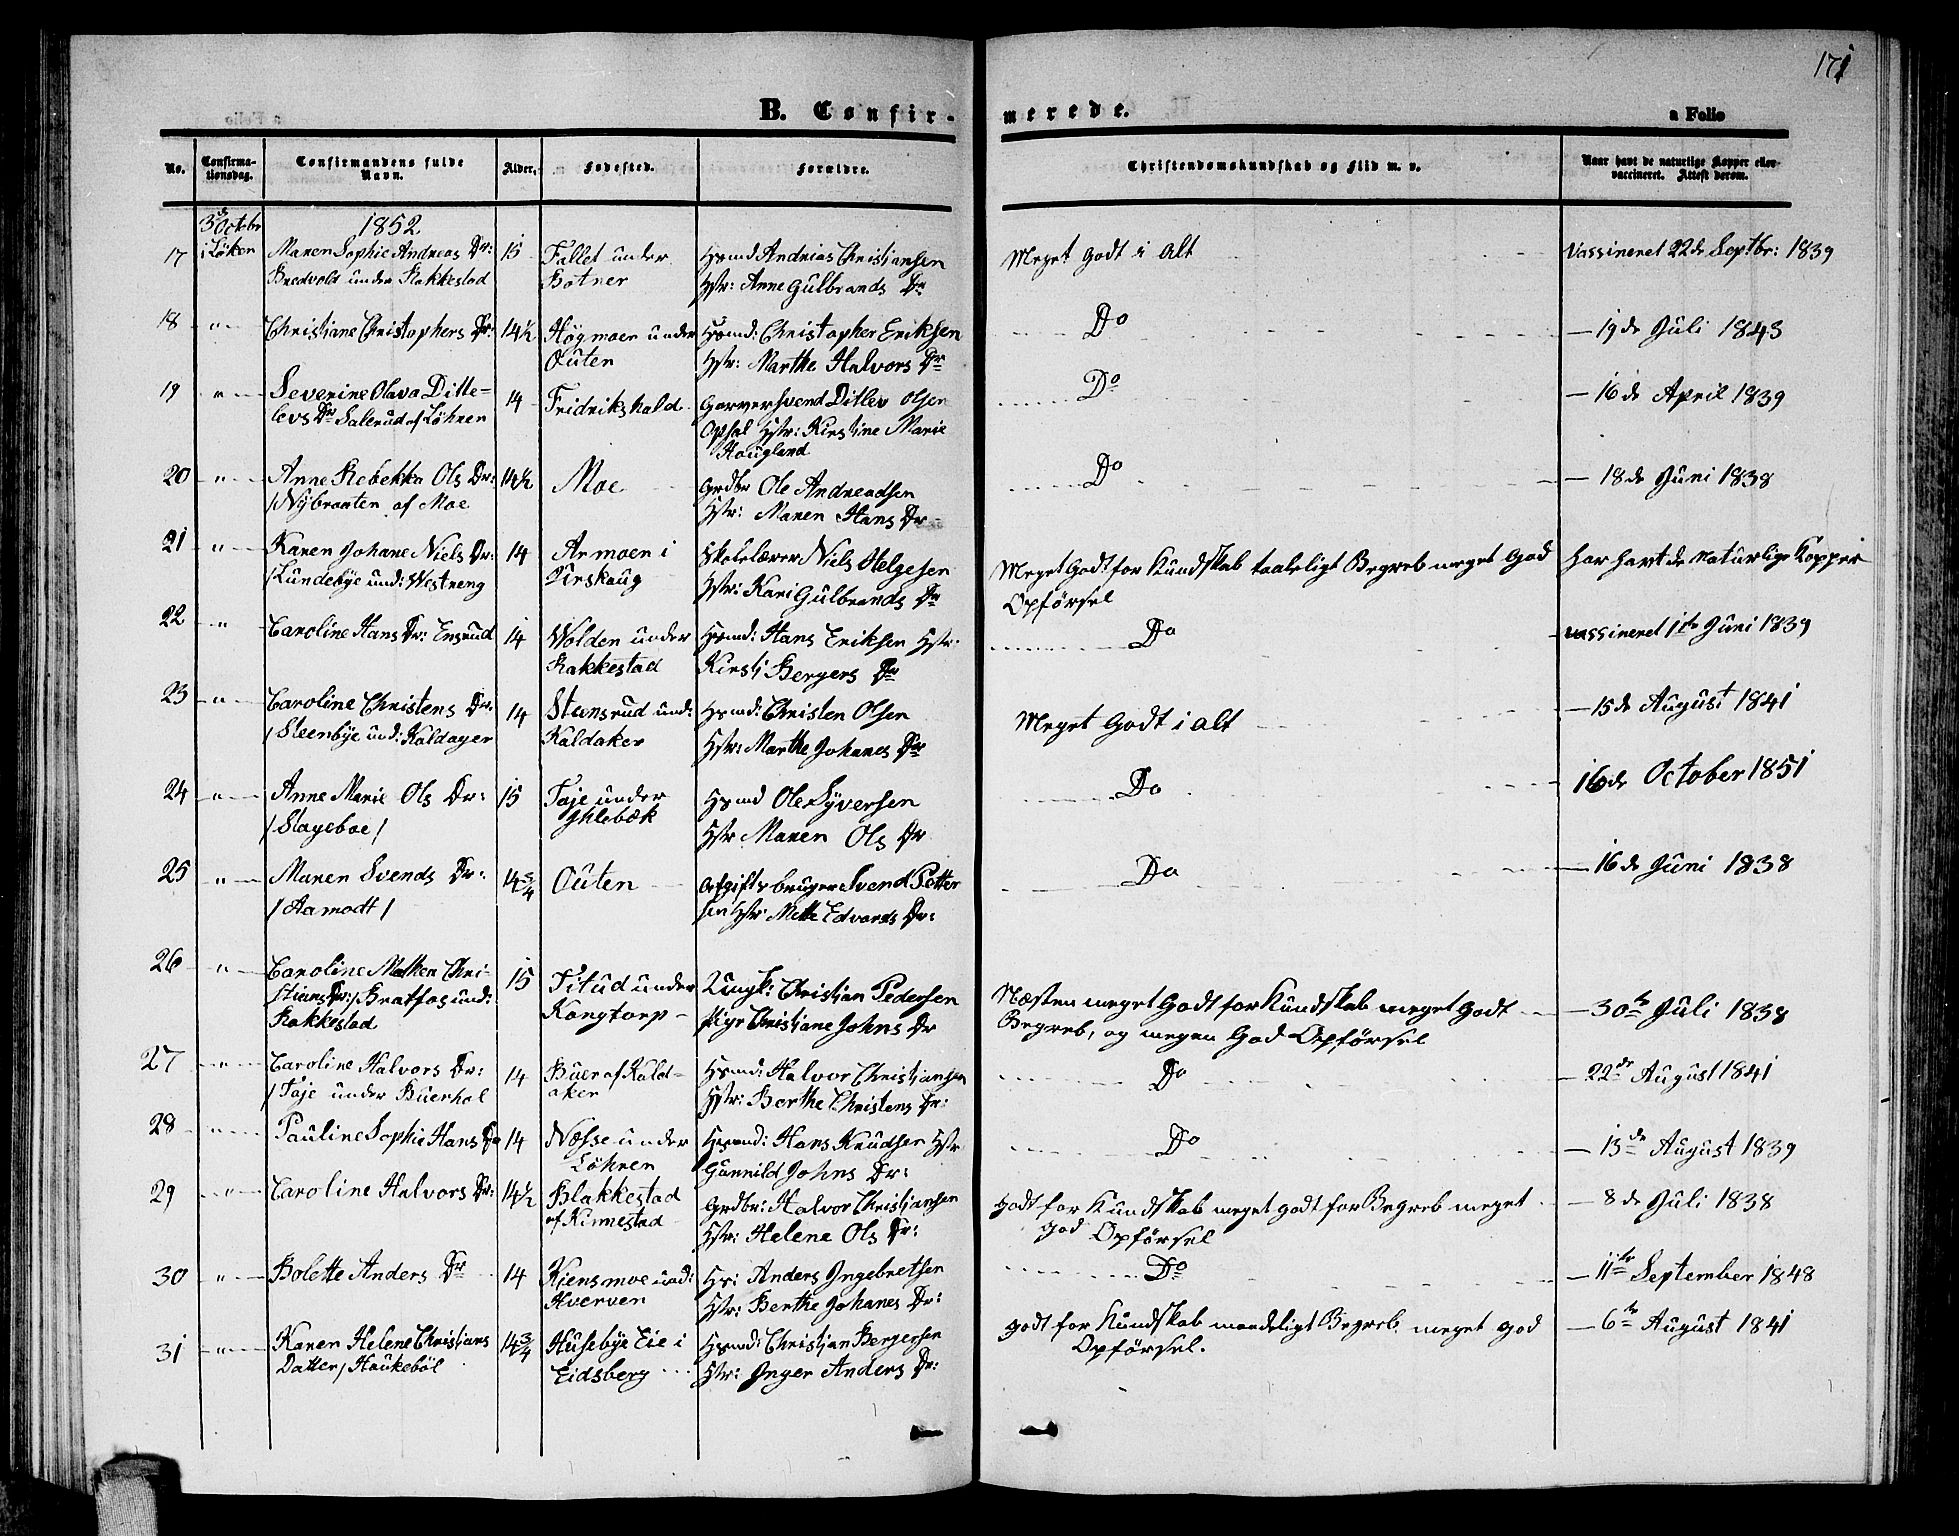 171
B. Confir-
merede.
a Folio
No.
Confirma-
tionsdag.
Confirmandens fulde
Navn.
Alder.
Fødested.
Forældre.
Christendomskundskab og Flid m. v.
Naar havt de naturlige Kopper eller
vaccineret. Attest derom.
3de Octbr 1852
i Löken
17 Maren Sophie Andreas Dr: 15 Fallet under Hsmd Andreas Christiansen Meget Godt i Alt Vassineret 22de Septbr: 1839
Bredvold under Rakkestad Botner Hstr: Anne Gulbrands Dr
18 " Christiane Christophers Dr: 14½ Högmoen under Hsmd: Christopher Eriksen Do — 19de Juli 1843
Outen Hstr: Marthe Halvors Dr
19 " Severine Olava Ditle- 14 Fridrikshald Garversvend Ditlev Olsen Do — 16de April 1839
levs Dr Salerud af Löhren Opsal Hstr: Kirstine Marie
Hougland
20 " Anne Rebekka Ols Dr: 14½ Moe Grdbr Ole Andreadsen Do — 18de Juni 1838
/Nybraaten af Moe Hstr: Maren Hans Dr
21 " Karen Johane Niels Dr: 14 Armoen i Skolelærer Niels Helgesen Meget Godt for Kundskab taaleligt Begreb meget God har havt de Naturlige Kopper
/Lundebye und: Westreng Kirskaug Hstr: Kari Gulbrands Dr Opförsel
22 " Caroline Hans Dr: Ensrud 14 Wolden under Hsmd: Hans Eriksen Hstr: Do vassineret 1ste Juni 1839
Rakkestad Kirsti Bergers Dr
23 " Caroline Christens Dr: 14 Stensrud und: Hsmd: Christen Olsen Meget Godt i alt — 15de August 1841
/Steenbye und: Kaldager Kaldaker Hstr: Marthe Johanes Dr
24 " Anne Marie Ols Dr: 15 Taje under Hsmd Ole Syversen Do 16de October 1851
/Slageboe/ Ihlebæk Hstr Maren Ols Dr
25 " Maren Svends Dr: 14¾ Outen Afgiftsbruger Svend Petter Do — 16de Juni 1838
/Aamodt/ sen Hstr Mette Edvards Dr:
26 " Caroline Mathea Chri- 15 Titud under Ungk: Christian Pedersen Næsten meget Godt for Kundskab meget Godt — 30te Juli 1838
stians Dr:/Bratfos und: Kongtorp — Pige Christiane Johns Dr Begreb, og megen God Opförsel
Rakkestad
27 " Caroline Halvors Dr: 14 Buer af Kald- Hsmd: Halvor Christiansen Do — 22de August 1841
/Taje under Buerhol aker Hstr: Berthe Christens Dr:
28 " Pauline Sophie Hans Dr 14 Næsse under Hsmd: Hans Knudsen Hstr Do — 13de August 1839
Löhren Gunnild Johns Dr:
29 " Caroline Halvors Dr: 14½ Blakkestad Grdbr: Halvor Christiansen godt for Kundskab meget godt for Begreb meget — 8de Juli 1838
af Kinnestad Hstr: Helene Ols Dr: god Opförsel
30 " Bolette Anders Dr 14 Kiensmoe und: Hs: Anders Ingebretsen Do — 11te September 1848
Hverven Hstr: Berthe Johanes Dr:
31 " Karen Helene Christians 14¾ Husebye Eie i Hsmd: Christian Bergersen godt for Kundskab maadeligt Begreb meget god — 6te August 1841
Datter/Haukeböl Eidsberg Hstr: Inger Anders Dr: Opförsel.